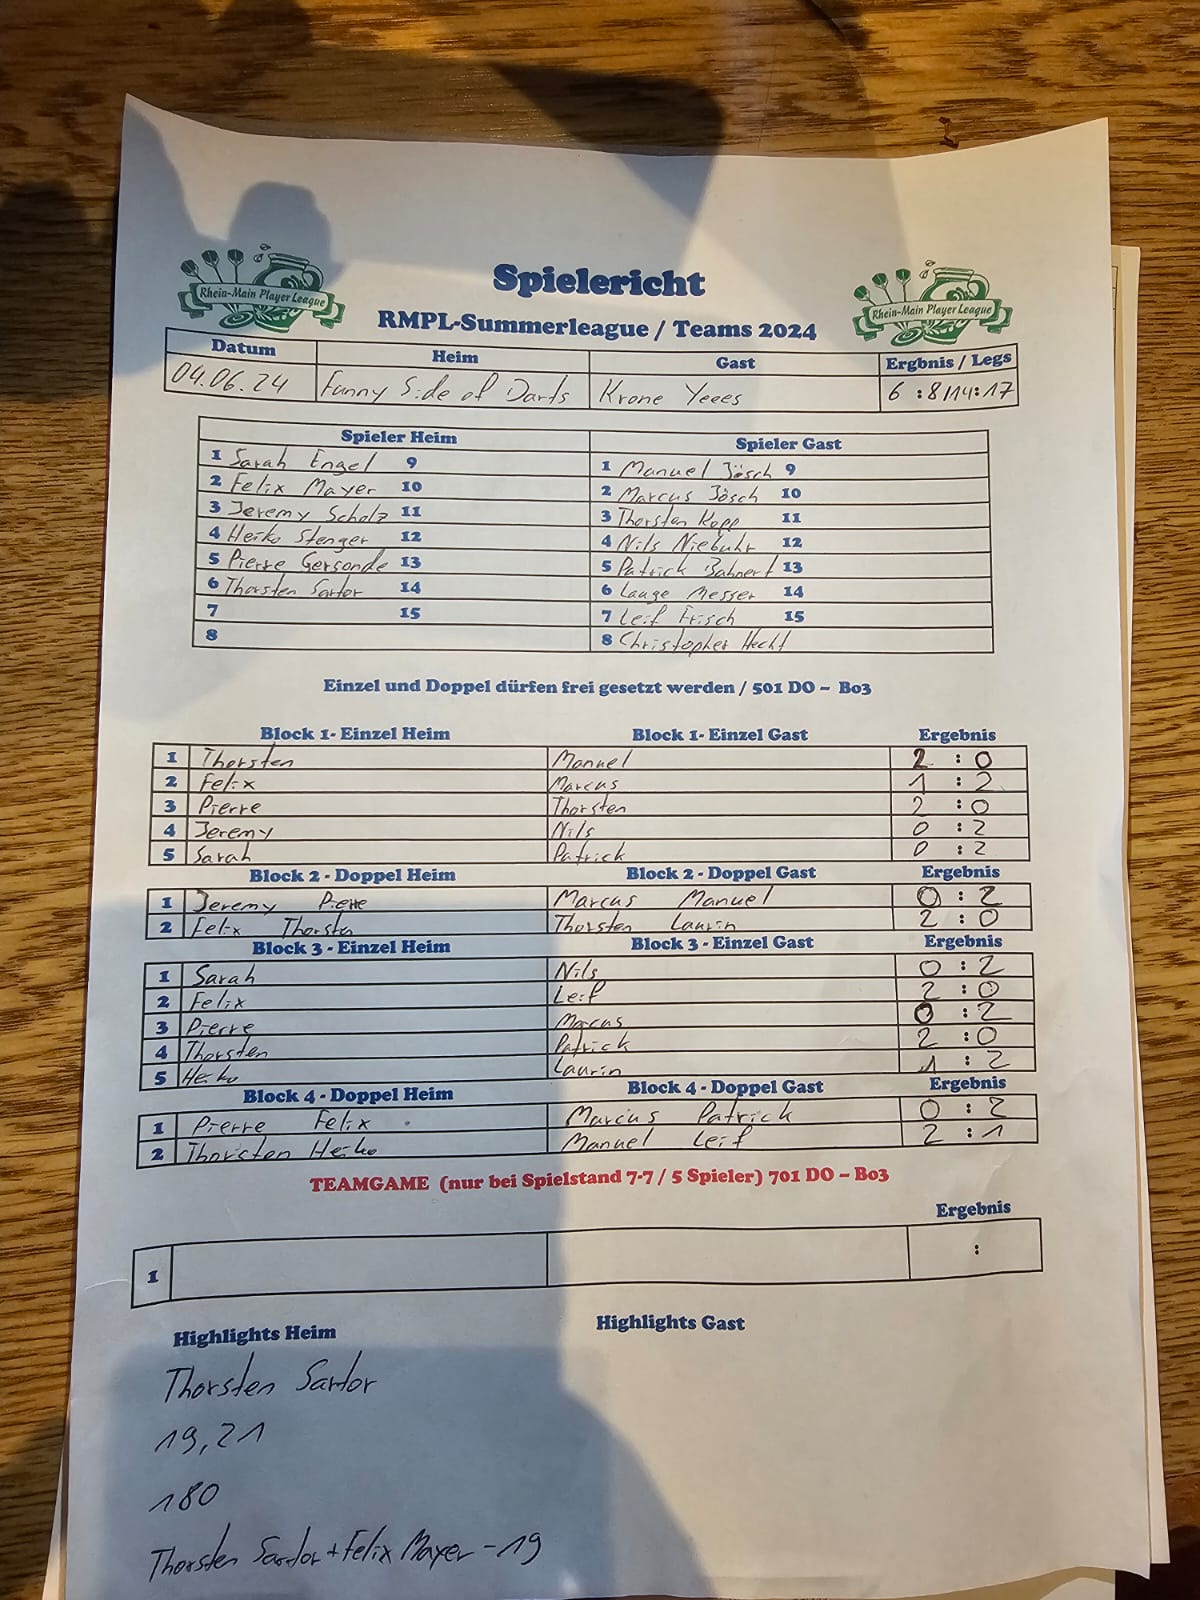 Spielericht
Rhein-Main Player League
Rhein-Main Player League
RMPL-Summerleague / Teams 2024
Datum Heim Gast Ergbnis / Legs
04.06.24 Funny Side of Darts Krone Yeees 6 :8/14:17
Spieler Heim Spieler Gast
1 Sarah Engel 9 1 Manuel Jösch 9
2 Felix Mayer 10 2 Marcus Jösch 10
3 Jeremy Scholz 11 3 Thorsten Kopp 11
4 Heiko Stenger 12 4 Nils Niebuhr 12
5 Pierre Gersonde 13 5 Patrick Bahnert 13
6 Thorsten Sartor 14 6 Messer 14
7 15 7 Leif Frisch 15
8 8 Christopher Hecht
Einzel und Doppel dürfen frei gesetzt werden / 501 DO – Bo3
Block 1- Einzel Heim Block 1- Einzel Gast Ergebnis
1 Thorsten Manuel 2 : 0
2 Felix Marcus 1 : 2
3 Pierre Thorsten 2 : 0
4 Jeremy Nils 0 : 2
5 Sarah Patrick 0 : 2
Block 2 - Doppel Heim Block 2 - Doppel Gast Ergebnis
1 Jeremy Pierre Marcus Manuel 0 : 2
2 Felix Thorsten Thorsten Laurin 2 : 0
Block 3 - Einzel Heim Block 3 - Einzel Gast Ergebnis
1 Sarah Nils 0 : 2
2 Felix Leif 2 : 0
3 Pierre Marcus 0 : 2
4 Thorsten Patrick 2 : 0
5 Heiko Laurin 1 : 2
Block 4 - Doppel Heim Block 4 - Doppel Gast Ergebnis
1 Pierre Felix Marcus Patrick 0 : 2
2 Thorsten Heiko Manuel Leif 2 : 1
TEAMGAME (nur bei Spielstand 7-7 / 5 Spieler) 701 DO – Bo3
Ergebnis
1 :
Highlights Heim Highlights Gast
Thorsten Sartor
19, 21
180
Thorsten Sartor + Felix Mayer - 19